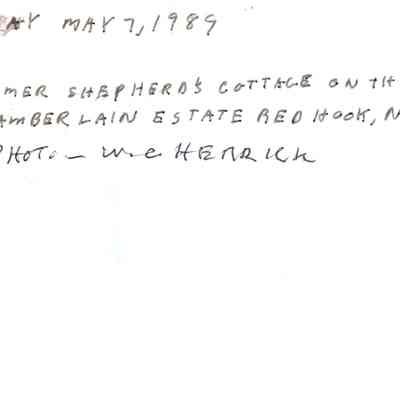 AY MAY 7, 1989
MER SHEPHERD'S COTTAGE ON TH
AMBERLAIN ESTATE RED HOOK, N
PHOTO — Wm C HERRICK